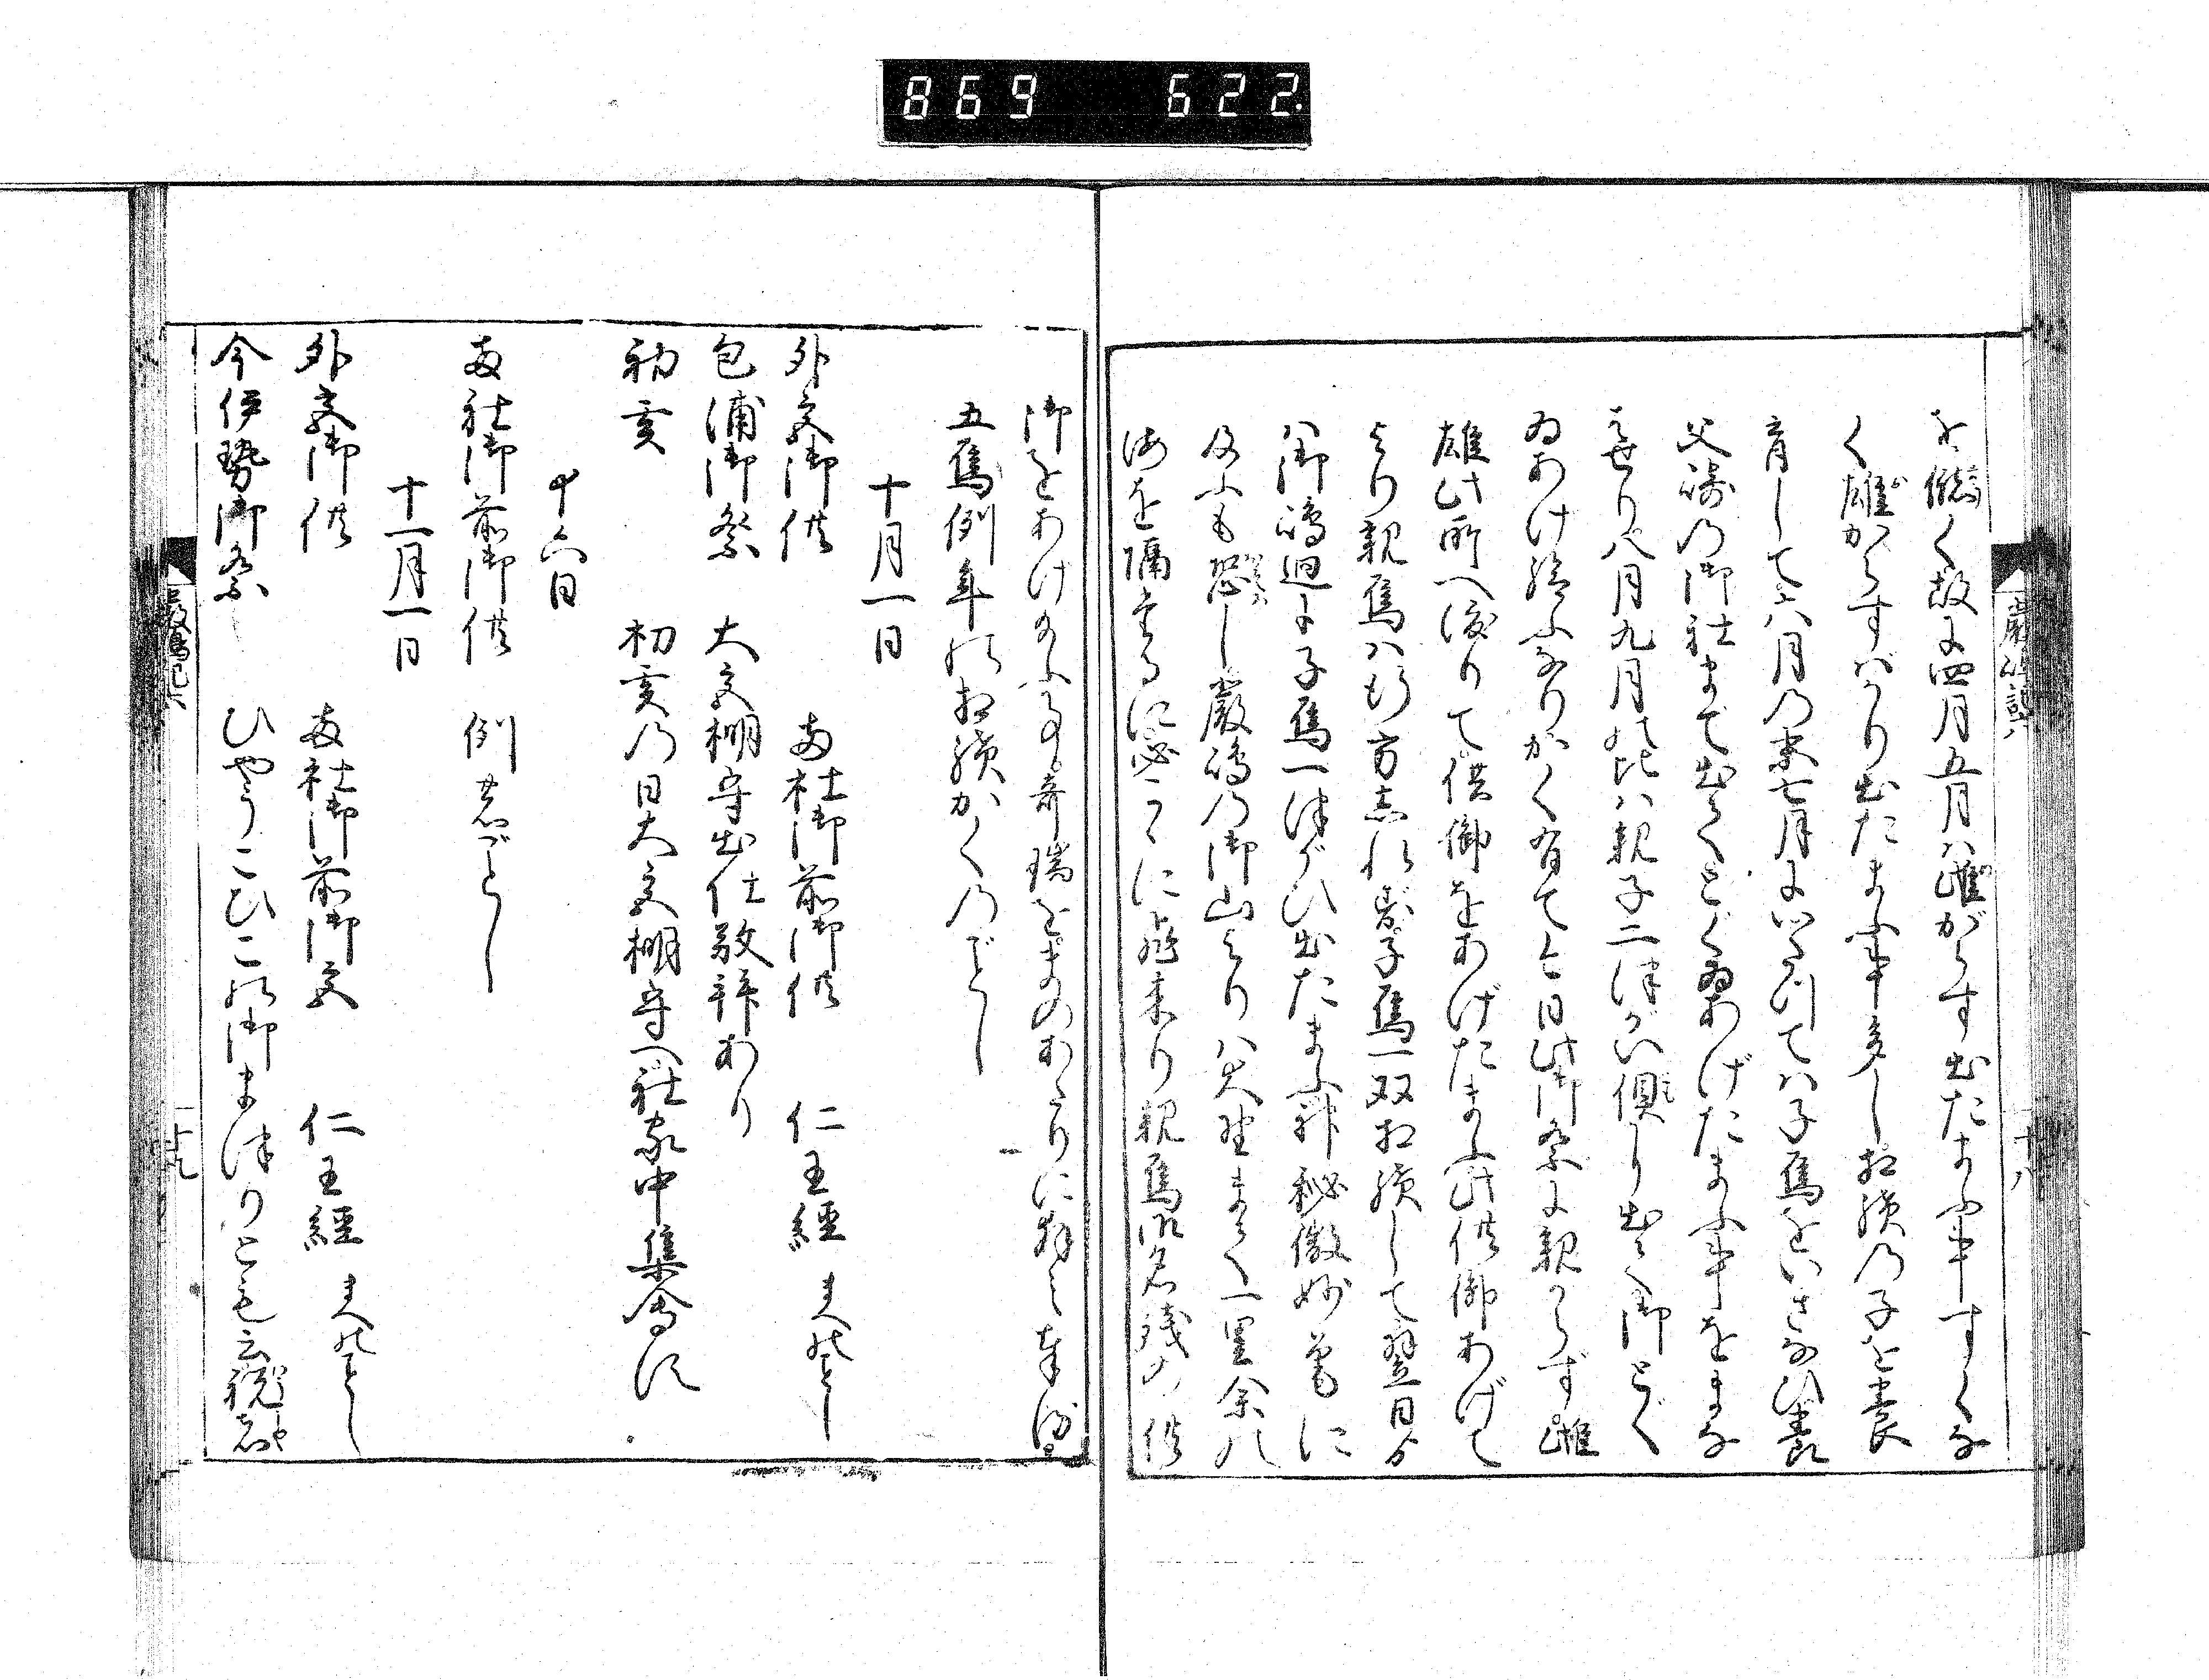 869 622
を儲く故に四月五月ハ雌がらす出たまふ事すくな
く雄がらすバかり出たまふ事多し相続の子を養
育して六月の末七月にいたつてハ子烏をいざなひ養
父崎の御社まで出てくとぐゐあげたまふ事をまな
ばせり八月九月の比ハ親子二つがい倶に出て御とぐ
ゐあけ給ふなりかく有て今日此御祭に親からず雌
雄此所へ渡りて供御をあげたまふ此供御あげて
より親烏ハ行方志れず子烏一双相続して翌日より
ハ御嶋廻に子烏一つがひ出たまふ神秘微妙筆に
及ふも恐し厳嶋の御山よりハ大野まて一里余の
海を隔たるに必こゝに飛来り親烏御名残の供
御をあけ給ふ事奇瑞をまのあたりに拝し奉る
五烏例年の相続かくのごとし
十月一日
外宮御供 両社御前御供 仁王經 まへのごとし
包浦御祭 大宮棚守出仕敬拜あり
初亥 初亥の日大宮棚守へ社家中集會す
十六日
両社御前御供 例せつのごとし
十一月一日
外宮御供 両社御前御供 仁王經 まへのごとし
今伊勢御祭 ひやうこひこの御まつりとも云祝師
嚴嶋記六
十八
嚴島記六
十九